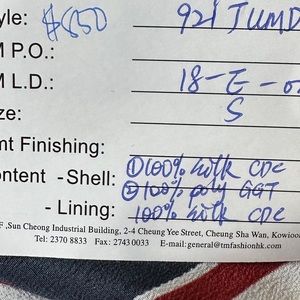 tyle: $850 921 JUMD
M P.O.:
M L.D.: 18-E-0
ize: S
mt Finishing:
ontent - Shell: ①100% silk CDC
②100% poly GGT
- Lining: 100% silk CDC
F ,Sun Cheong Industrial Building, 2-4 Cheung Yee Street, Cheung Sha Wan, Kowloon
Tel: 2370 8833 Fax: 2743 0033 E-mail:general@tmfashionhk.com